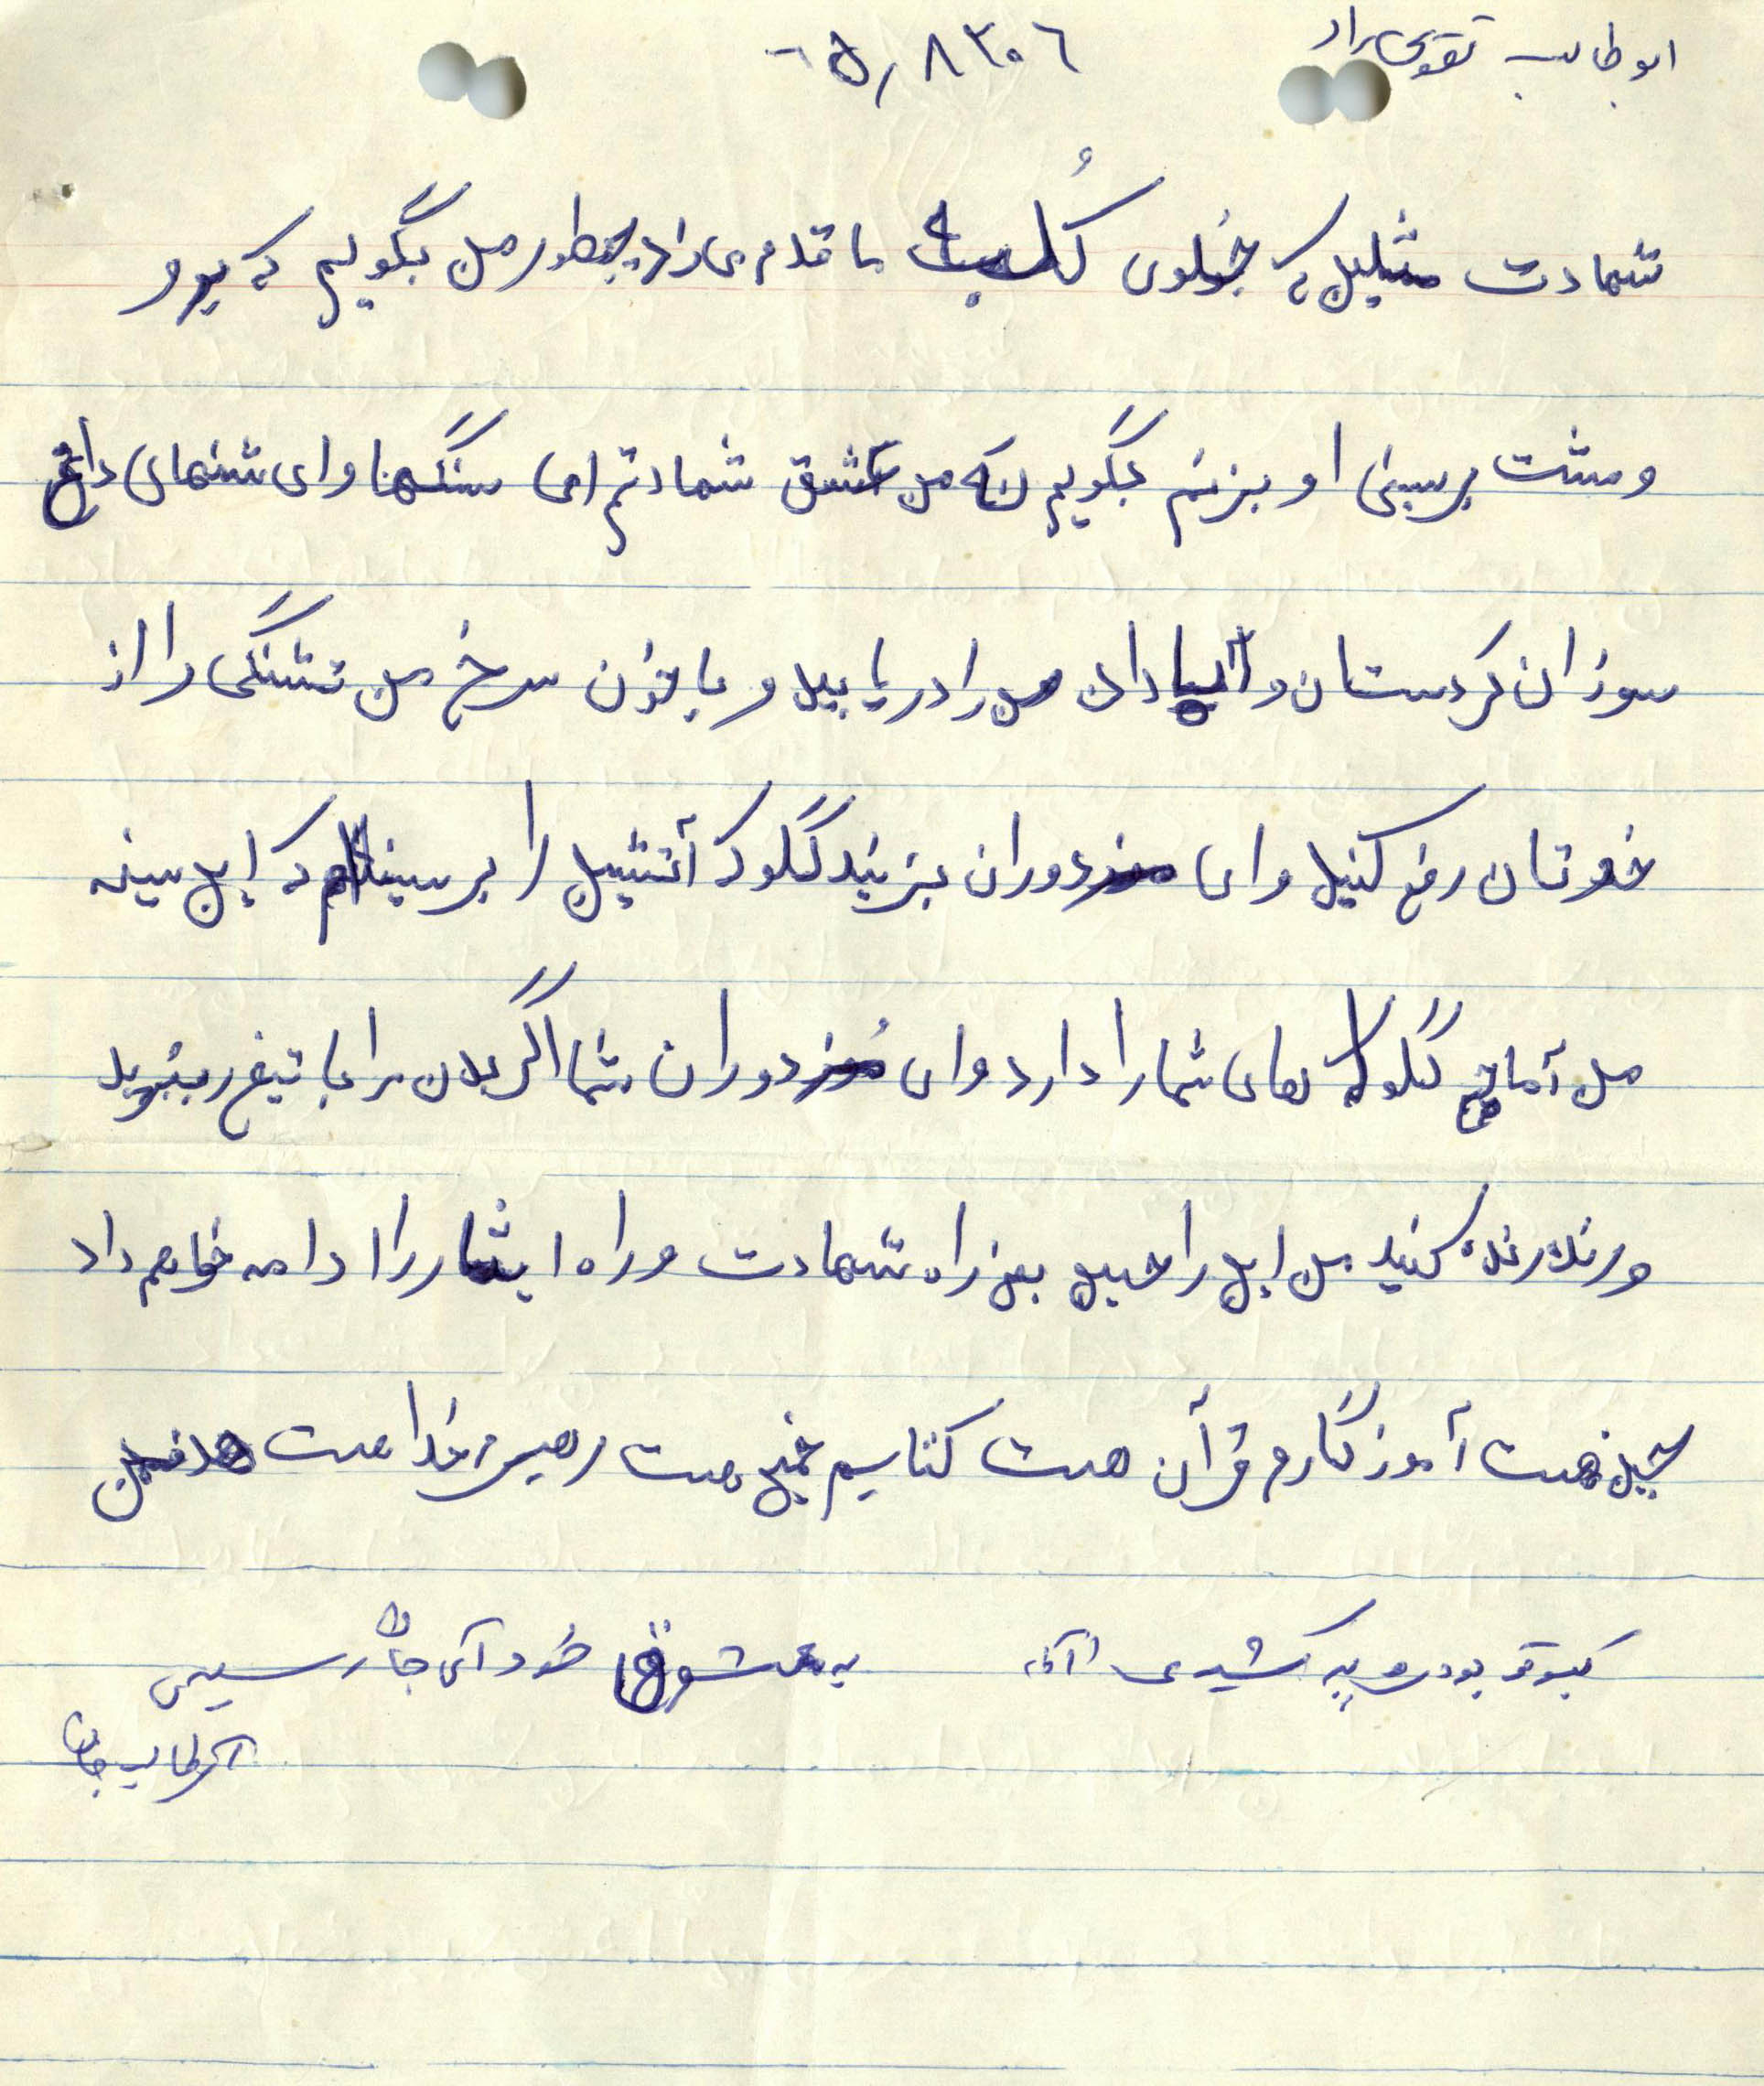 ابوطالب تقوی راد ۸۳۰۶ر۶۵
شهادت جلوی ما قدم می زند چطور من بگویم که برو
و مشت بر سینی او بزنم بگویم نه من عاشق شهادتم ای سنگها و ای شنهای داغ
سوزان کردستان و آبادان من را دریابید و با خون سرخ من تشنگی را از
خودتان رفع کنید و ای مزدوران بزنید گلوله آتشین را بر سینه ام که این سینه
من آماج گلوله های شما را دارد و ای مزدوران شما اگر بدن مرا با تیغ ببرید
ورنده رنده کنید من این راه یعنی راه شهادت و راه ایثار را ادامه خواهم داد
هست آموزگارم قرآن هست کتابم خمینی هست رهبرم خدا هست هدفم
کبوتر بودی پر کشیدی به معشوق خود آی جان رسیدی
جان